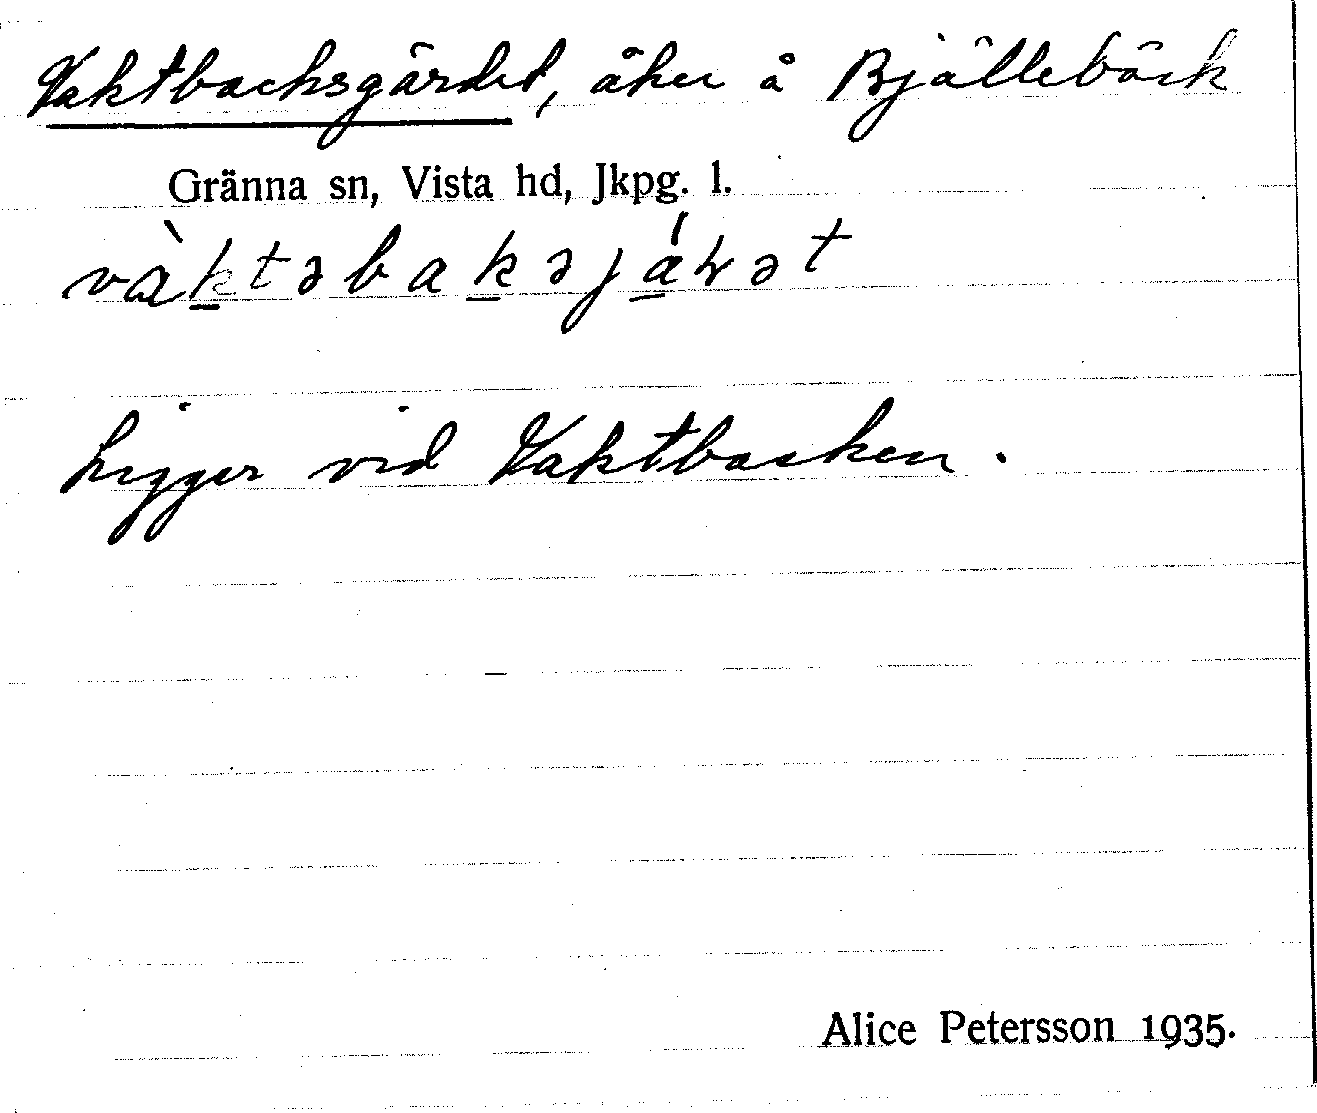 Vaktbacksgärdet, åker å Bjällebäck
Gränna sn, Vista hd, Jkpg. l.
Ligger vid Vaktbacken.
Alice Petersson 1935.